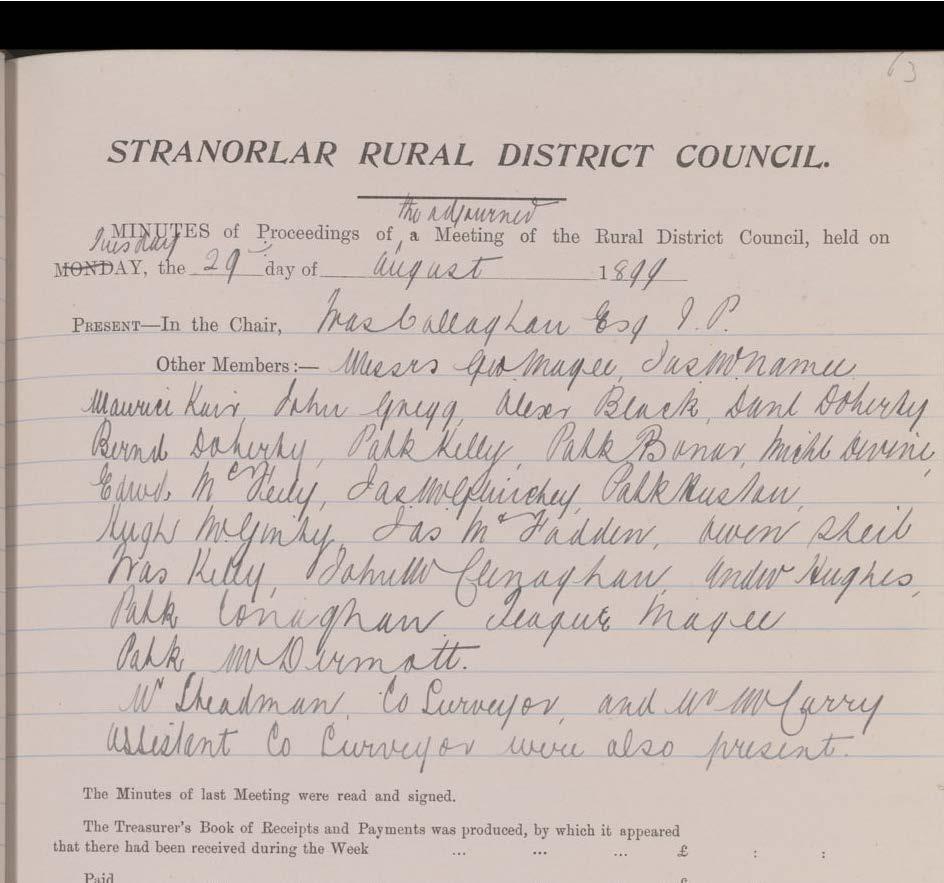 63
STRANORLAR RURAL DISTRICT COUNCIL.
the adjourned
MINUTES of Proceedings of a Meeting of the Rural District Council, held on
Tuesday
MONDAY, the 29 day of August 1899
PRESENT—In the Chair, Callaghan Esq J. P.
Other Members:— Messrs Geo Magee, Jas McNamee
Maurice Kerr, John Gregg, Alexr Black, Danl Doherty
Bernd Doherty, Patk Kelly, Patk Bonar, Michl Devine,
Edwd. McFeely, Jas McGlinchey, Patk Huston,
Hugh McGinty, Jas McFadden, Owen Sheil
Kelly, John McClenaghan, Andw Hughes,
Patk Conaghan Teague Magee
Patk McDermott.
Mr Steadman, Co Surveyor, and Mr McCarry
Assistant Co Surveyor were also present.
The Minutes of last Meeting were read and signed.
The Treasurer's Book of Receipts and Payments was produced, by which it appeared
that there had been received during the Week ... ... ... £ : :
Paid